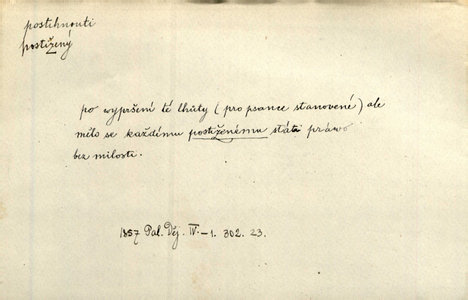 postihnouti
postižený
po vypršení té lhůty (pro psance stanovené) ale
mělo se každému postiženému státi právo
bez milosti.
1857 Pal. Děj. IV.–1. 302. 23.